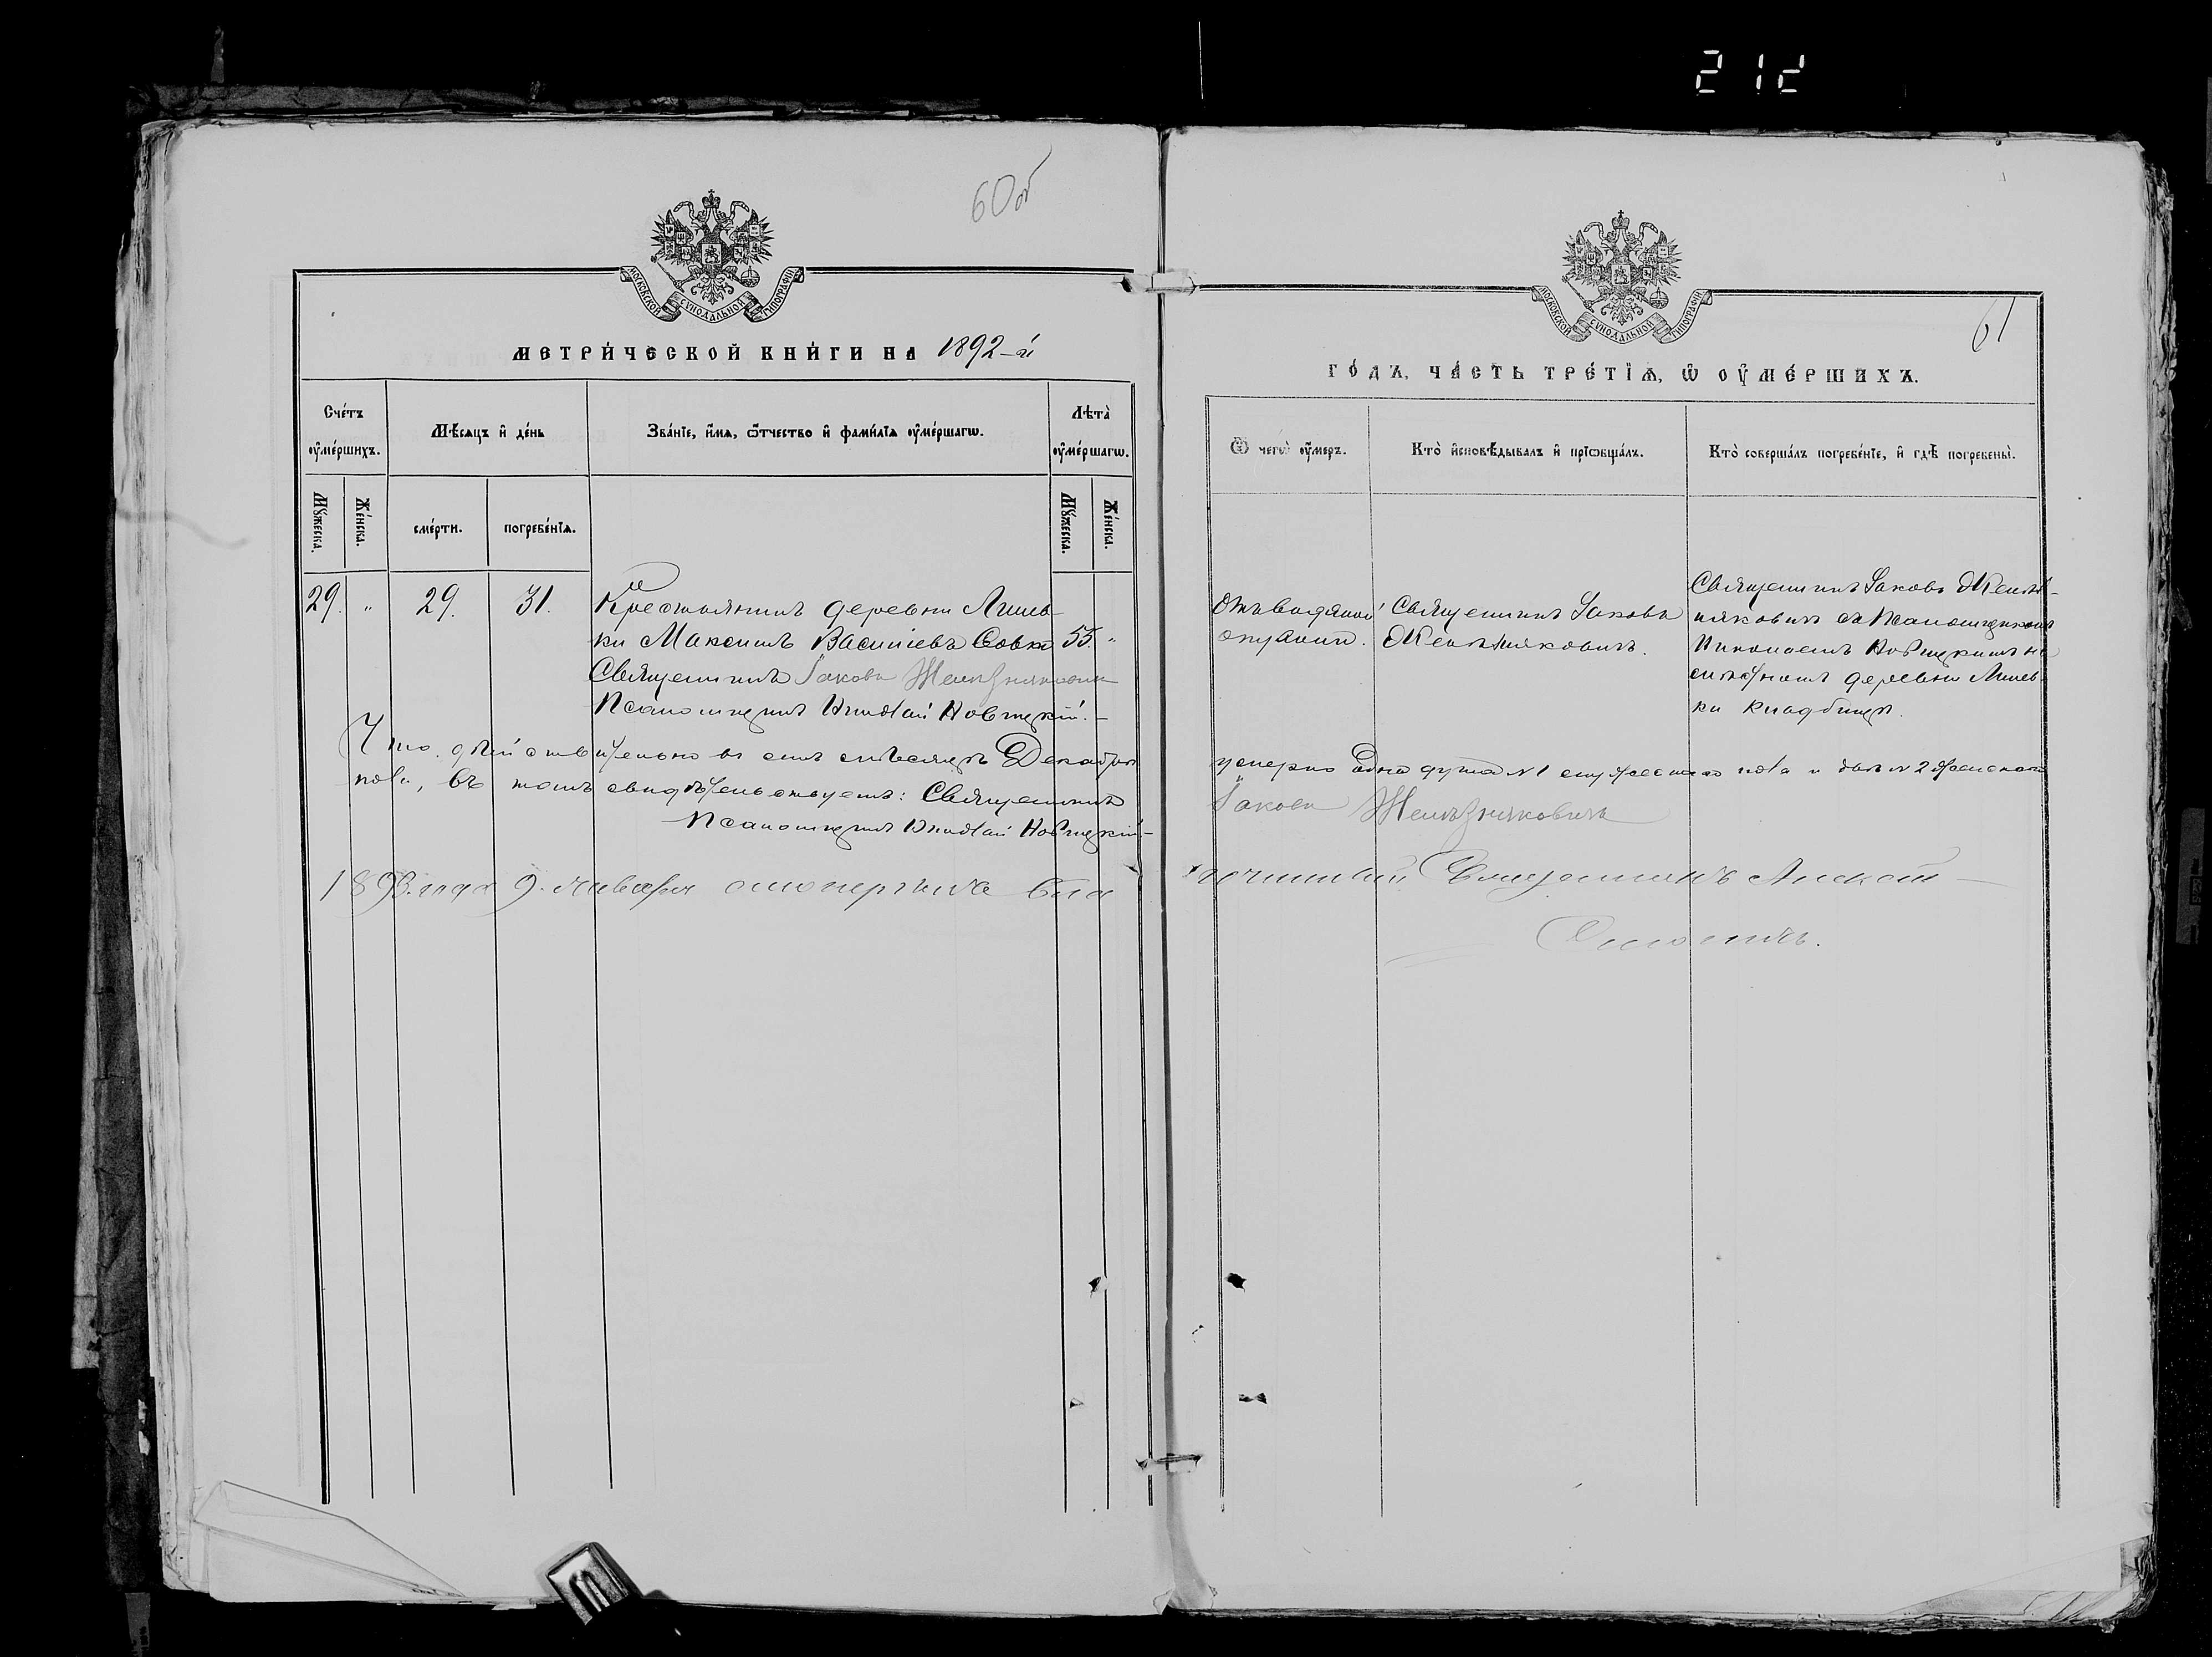 212
60об
МОСКОВСКОЙ СУНОДАЛЬНОЙ ТИПОГРАФІИ
МЕТРИ́ЧЕСКОЙ КНИ́ГИ НА 1892-й
Сче́тъ оу҆ме́ршихъ.
Мѣ́сяцъ и҆ де́нь
Зва́нїе, и҆́мѧ, ѿтчество и҆ фами́лїѧ оу҆ме́ршагѡ.
Лѣта̀ оу҆ме́ршагѡ.
Му́жеска.
Же́нска.
сме́рти.
погребе́нїѧ.
Му́жеска.
Же́нска.
29. " 29. 31. Крестьянинъ деревни Лишев-
ки Максимъ Васильевъ Совка 55. "
Священникъ Іаковъ Желѣзняковичъ
Псаломщикъ Николай Новицкій.-
Что дѣйствительно въ семъ мѣсяцѣ Декабрѣ
пола, въ томъ свидѣтельствуетъ: Священникъ
Псаломщикъ Николай Новицкій-
1893 года 9. января
61
МОСКОВСКОЙ СУНОДАЛЬНОЙ ТИПОГРАФІИ
ГО́ДЪ, ЧА́СТЬ ТРЕ́ТЇѦ, Ѡ҆ ОУ҆МЕ́РШИХЪ.
Ѿ чегѡ̀ оу҆́меръ.
Кто̀ и҆сповѣ́дывалъ и҆ прїѡбща́лъ.
Кто̀ соверша́лъ погребе́нїе, и҆ гдѣ̀ погребены̀.
Отъ водяной
опухоли.
Священникъ Іаковъ
Желѣзняковичъ.
Священникъ Іаковъ Желѣз-
няковичъ съ Псаломщикомъ
Николаемъ Новицкимъ на
деревни Лишев-
ки кладбищѣ.
умерло одна душа № 1 мужескаго пола и № 2 женскаго
Іаковъ Желѣзняковичъ
Священникъ